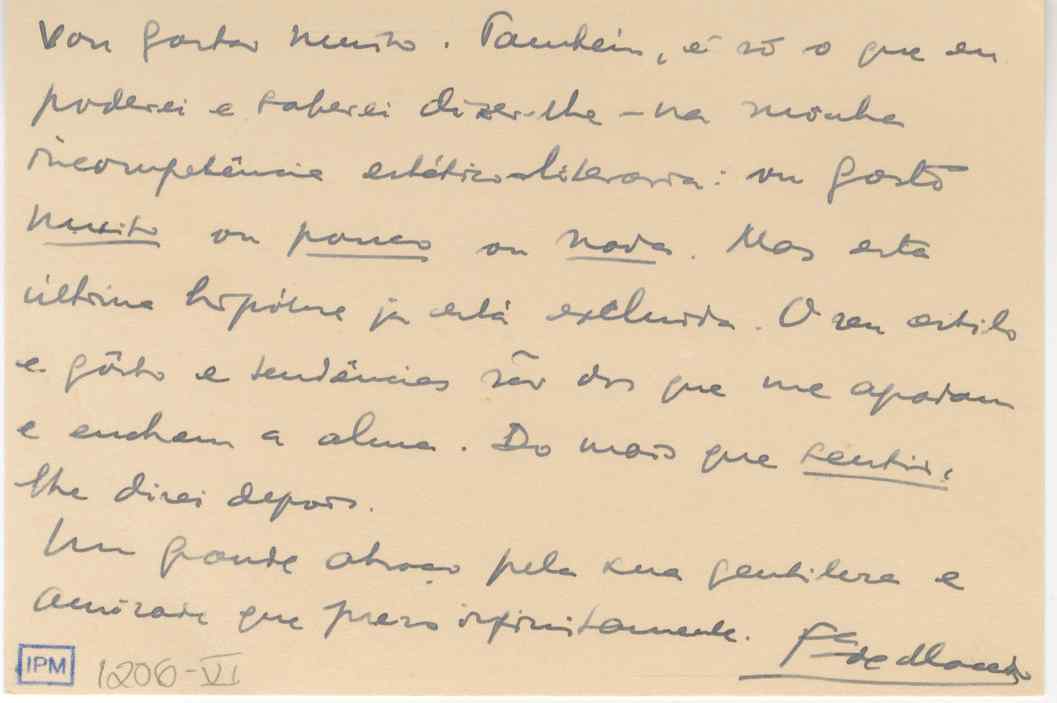 Vou gostar muito. Também, é só o que eu
poderei e saberei dizer-lhe – na minha
incompetência estético-literaria: ou gosto
muito ou pouco ou nada. Mas esta
última hipótese já está excluida. O seu estilo
e gôsto e tendências são dos que me agradam
e enchem a alma. Do mais que sentir,
lhe direi depois.
Um grande abraço pela sua gentileza e
amizade que prezo infinitamente.
IPM 1206-VI